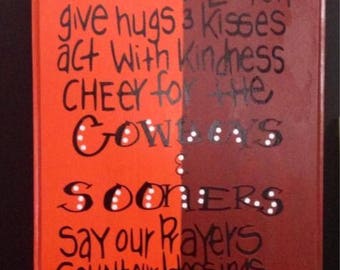 give hugs & kisses
act with kindness
CHEER for the
COWBOYS
&
SOONERS
say our Prayers
count our blessings